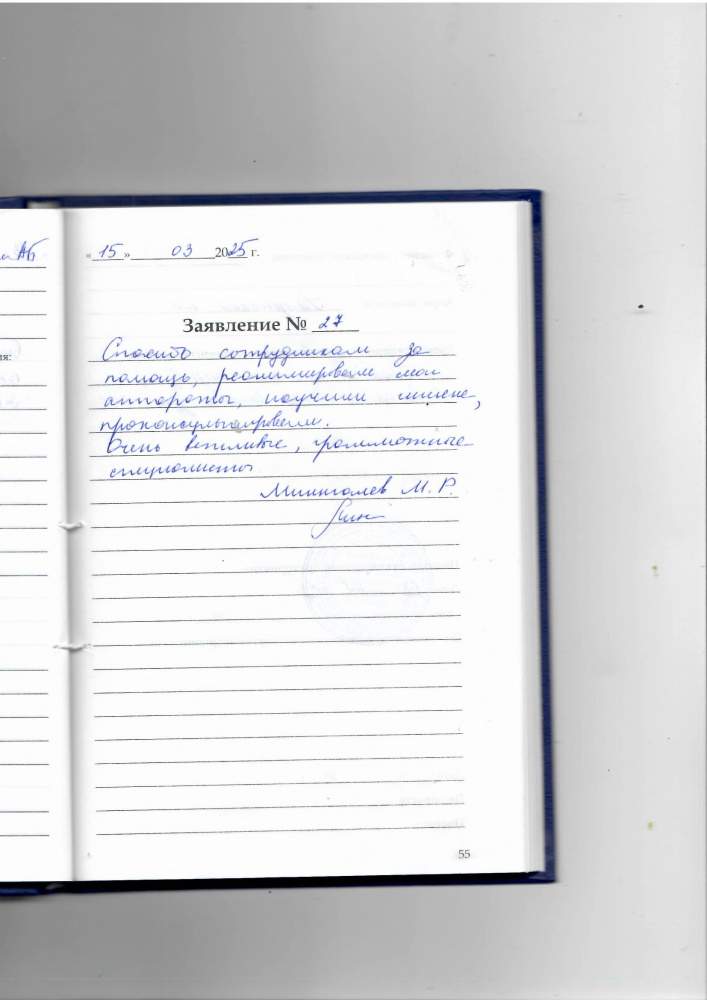 АБ
ия:
« 15 » 03 2025 г.
Заявление № 27
Спасибо сотрудникам за
помощь, реанимировали мои
аппараты, научили
проконсультировали.
Очень вежливые, грамотные
специалисты
М. Р.
55